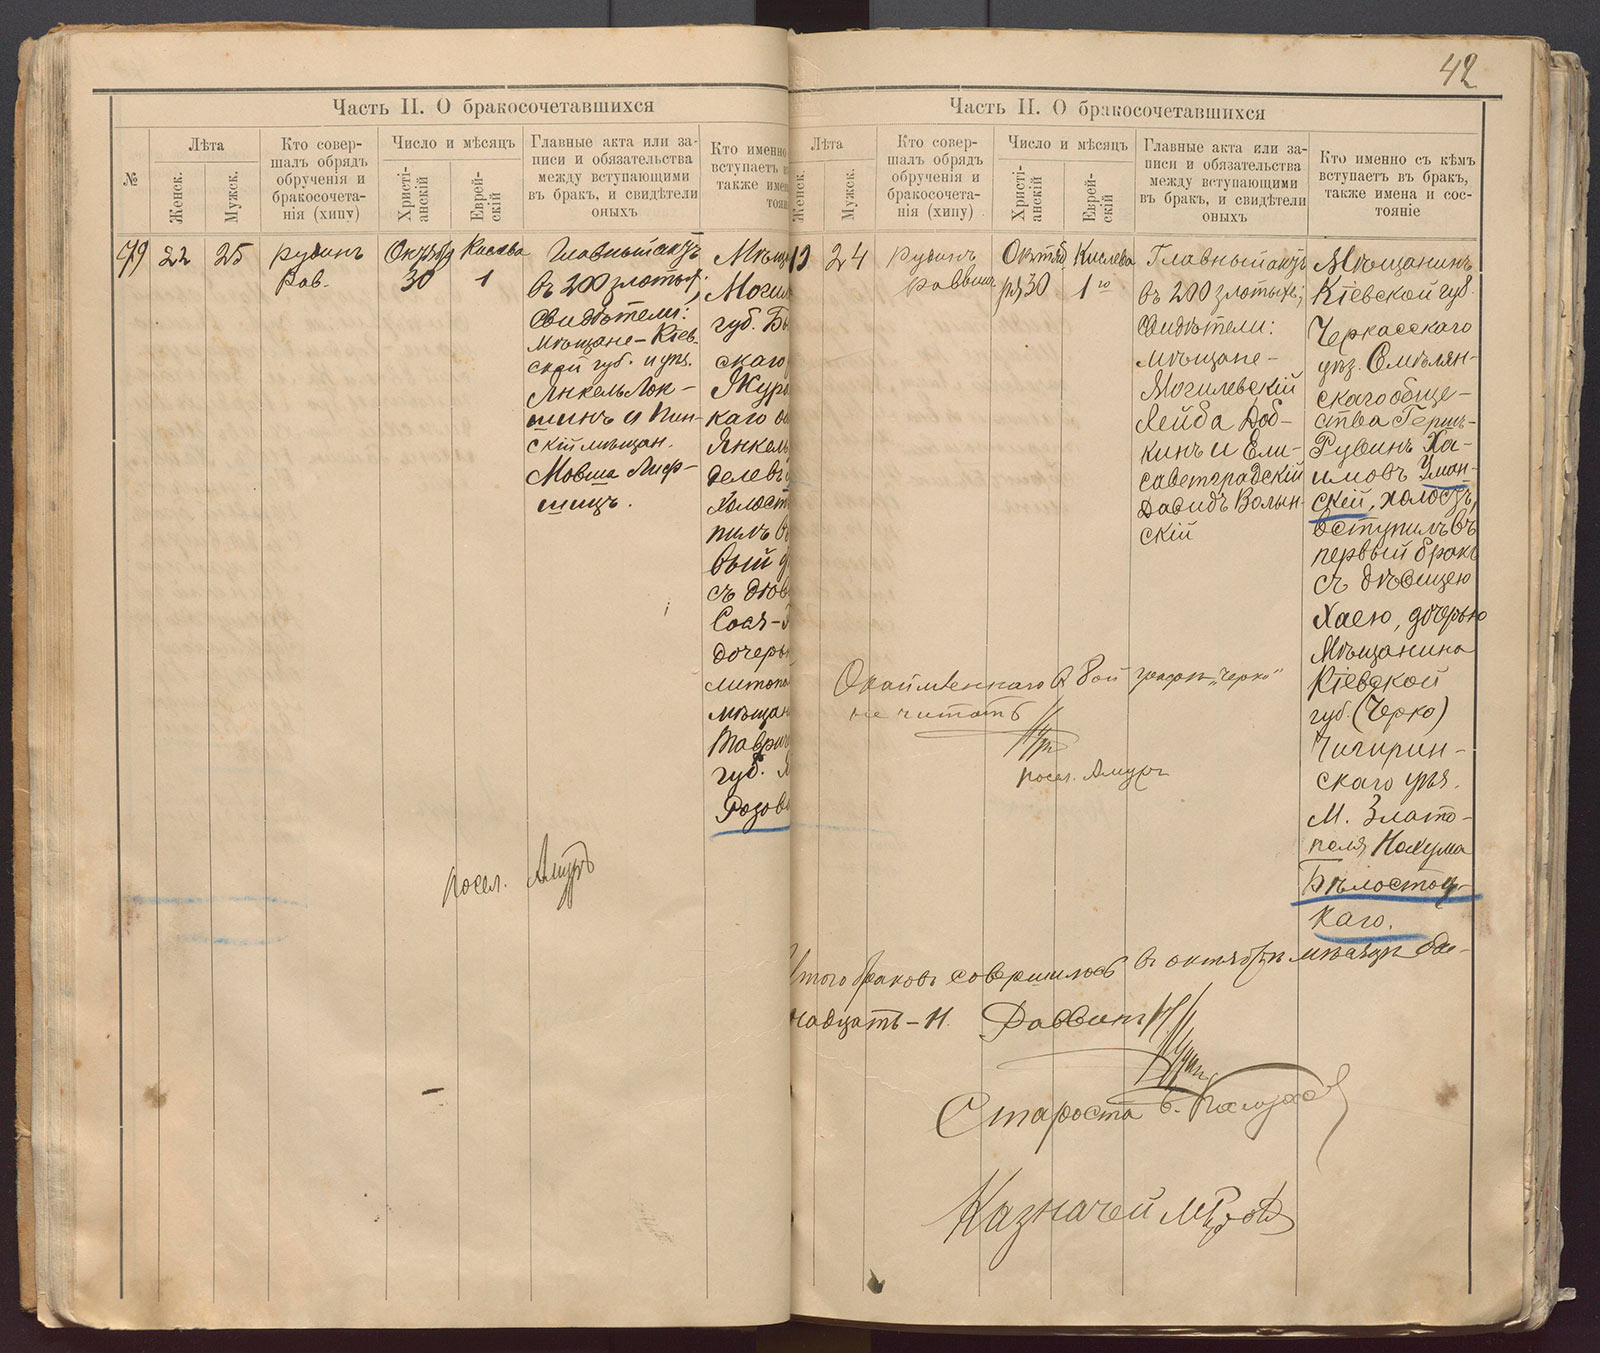 42
Часть II. О бракосочетавшихся
№
Лѣта
Женск.
Мужск.
Кто совер-
шалъ обрядъ
обрученія и
бракосочета-
нія (хипу)
Число и мѣсяцъ
Христі-
анскій
Еврей-
скій
Главные акта или за-
писи и обязательства
между вступающими
въ бракъ, и свидѣтели
оныхъ
Кто именно
вступаетъ
также имен
тояні
79
22
25
Рувинъ
Рав.
30
1
Главный актъ
въ 200 злотых;
Свидѣтели:
мѣщане - Кіев
ской губ. и уѣз.
Янкель Лок-
шинъ и Пин-
скій мѣщан.
Мовша Лиф-
шицъ.
Мѣща
Могил
губ. Бы
скаго
Журо
каго об
Янкель
делевъ
холост
пилъ в
вый
съ дѣв
Сося-
дочерь
литопо
мѣщан
Таврич
губ.
Розов
посел. Амуръ
Часть II. О бракосочетавшихся
Лѣта
Женск.
Мужск.
Кто совер-
шалъ обрядъ
обрученія и
бракосочета-
нія (хипу)
Число и мѣсяцъ
Христі-
анскій
Еврей-
скій
Главные акта или за-
писи и обязательства
между вступающими
въ бракъ, и свидѣтели
оныхъ
Кто именно съ кѣмъ
вступаетъ въ бракъ,
также имена и сос-
тояніе
24
Рувинъ
Раввинъ
Октяб
ря 30
Кислева
1го
Главный актъ
въ 200 злотыхъ;
Свидѣтели:
мѣщане -
Могилевскій
Лейба Доб-
кинъ и Ели-
саветградскій
Давидъ Волын-
скій
Мѣщанинъ
Кіевской губ.
Черкасскаго
уѣз. Смѣлян-
скаго обще-
ства Гершъ-
Рувинъ Ха-
имовъ Уман-
скій, холостъ,
вступилъ въ
первый бракъ
съ дѣвицею
Хаею, дочерью
Мѣщанина
Кіевской
губ. (Черко)
Чигирин-
скаго уѣз.
М. Злато-
поля Нахума
Бѣлостоц-
каго.
8ой графѣ „Черко“
не читать
посел. Амуръ
Итого браковъ совершилось въ октябрѣ мѣсяцѣ две-
надцать - и. Раввинъ
Староста
Казначей